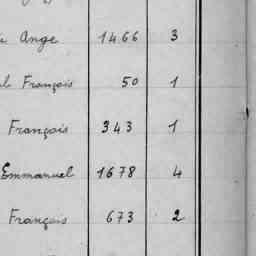 Ange 1466 3
François 50 1
François 343 1
Emmanuel 1678 4
François 673 2